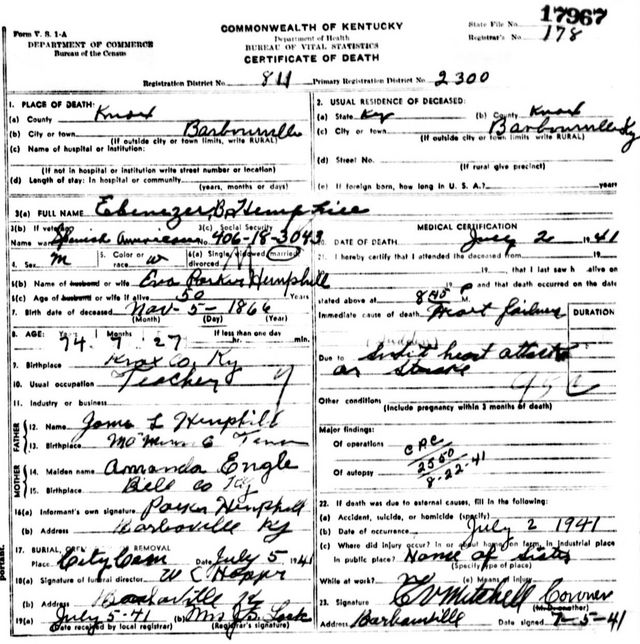 Form V. S. 1-A
DEPARTMENT OF COMMERCE
Bureau of the Census
COMMONWEALTH OF KENTUCKY
Department of Health
BUREAU OF VITAL STATISTICS
CERTIFICATE OF DEATH
State File No. 17967
Registrar's No. 178
Registration District No. 811 Primary Registration District No. 2300
1. PLACE OF DEATH:
(a) County Knox
(b) City or town Barbourville
(If outside city or town limits, write RURAL)
(c) Name of hospital or institution:
(If not in hospital or institution write street number or location)
(d) Length of stay: In hospital or community
(years, months or days)
2. USUAL RESIDENCE OF DECEASED:
(a) State Ky (b) County Knox
(c) City or town Barbourville Ky
(If outside city or town limits, write RURAL)
(d) Street No.
(If rural give precinct)
(e) If foreign born, how long in U. S. A.? years
3(a) FULL NAME Ebenezer B. Hemphill
3(b) If veteran
Name war Spanish American
3(c) Social Security
No. 406-18-3043
4. Sex M
5. Color or race W
6(a) Single, widowed, married, divorced
6(b) Name of husband or wife Eva Parker Hemphill
6(c) Age of husband or wife if alive 50 Years
7. Birth date of deceased Nov-5-1866
(Month) (Day) (Year)
8. AGE: Years Months If less than one day
74 7 27 hr. min.
9. Birthplace Knox Co, Ky
10. Usual occupation Teacher
11. Industry or business
FATHER
12. Name James L Hemphill
13. Birthplace McMinn Co Tenn
MOTHER
14. Maiden name Amanda Engle
15. Birthplace Bell Co Ky
16(a) Informant's own signature Parker Hemphill
(b) Address Barbourville Ky
17. BURIAL, REMOVAL
Place City Cem Date July 5 1941
18(a) Signature of funeral director W C Hopper
(b) Address Barbourville Ky
19(a) July 5-41 (b) Mrs J. B. Lock
(Date received by local registrar) (Registrar's signature)
MEDICAL CERTIFICATION
20. DATE OF DEATH July 2 1941
21. I hereby certify that I attended the deceased from
19 that I last saw h alive on
19 and that death occurred on the date
stated above at 8:45 P. m.
Immediate cause of death Heart failure
DURATION
Due to heart attack
or Stroke
95c
Other conditions
(Include pregnancy within 3 months of death)
Major findings:
Of operations
Of autopsy
CRC
2550
8-22-41
22. If death was due to external causes, fill in the following:
(a) Accident, suicide, or homicide (specify)
(b) Date of occurrence July 2 1941
(c) Where did injury occur? In or about home, on farm, in industrial place
in public place? Home of Sister
(Specify type of place)
While at work? (e) Means of injury
23. Signature C V Mitchell Coroner
Address Barbourville Date signed 7-5-41
portant.